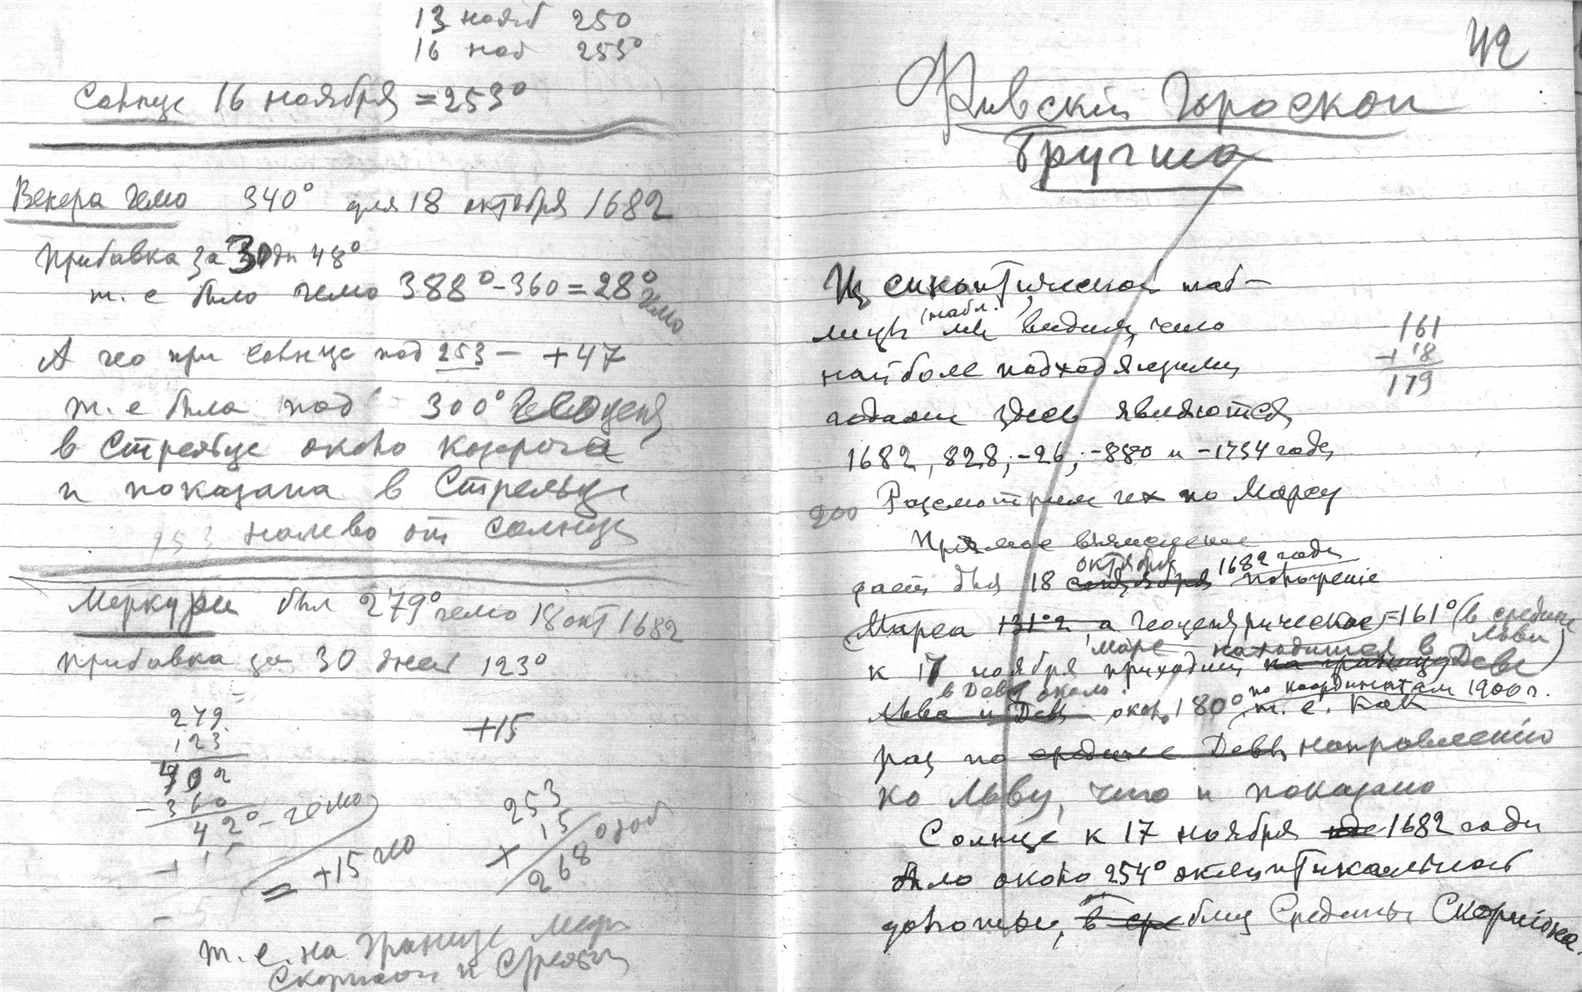 13 нояб 250
16 ноя 253°
Солнце 16 ноября = 253°
Венера гелио 340° для 18 октября 1682
Прибавка за 30 дн 48°
т. е было гелио 388° - 360 = 28° гелио
А гео при солнце под 253 — +47
т. е была под 300° геоцен
в Стрельце около козерога
и показана в Стрельце
253 налево от солнца
Меркурий был 279° гелио 18 окт 1682
прибавка за 30 дней 123°
279
123
402
-360
42° - гелио
= +15 гео
+15
253
15
268
т. е. на границе
Скорпион и Стрельц
42
Фивский Гороскоп
Бругша
Из синоптической таб-
лицы (табл. ) мы видим, что
наиболее подходящими
годами здесь являются
1682, 828, -26, -880 и -1734 годы
Рассмотрим их по Марсу
161
+18
179
Прямое вычисление
дает для 18 октября 1682 года
Марса геоцентрическое = 161° (в средине Льва)
к 17 ноября приходит Деве
в Деву около 180° по координатам 1900 г.
т. е. как
раз по направлению
ко Льву, что и показано
Солнце к 17 ноября 1682 года
было около 254° эклиптикальной
долготы, близ Средины Скорпиона.